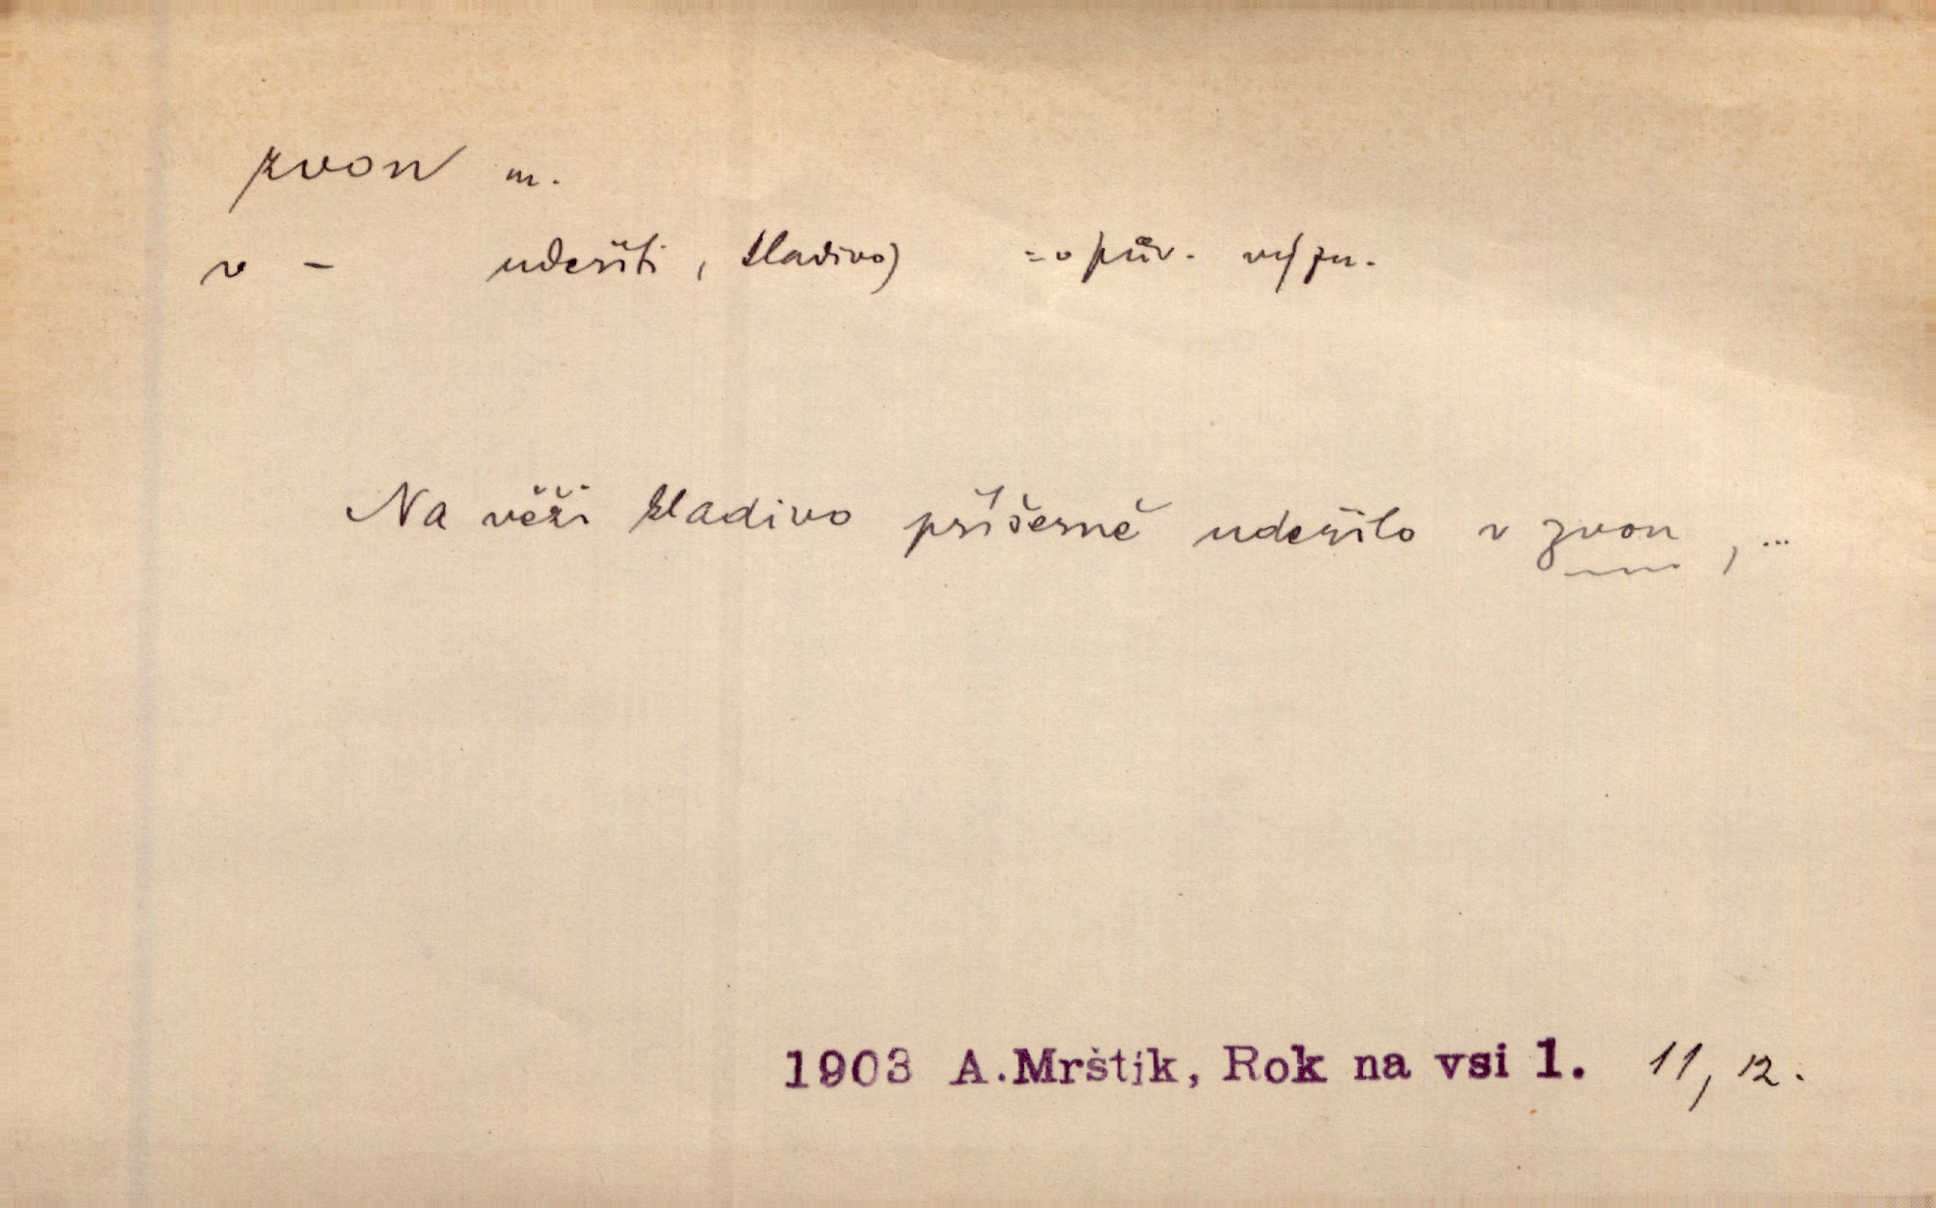 zvon m.
v – udeřiti, kladivo) = v pův. význ.
Na věži kladivo příšerně udeřilo v zvon, ...
1903 A.Mrštík, Rok na vsi 1. 11, 12.